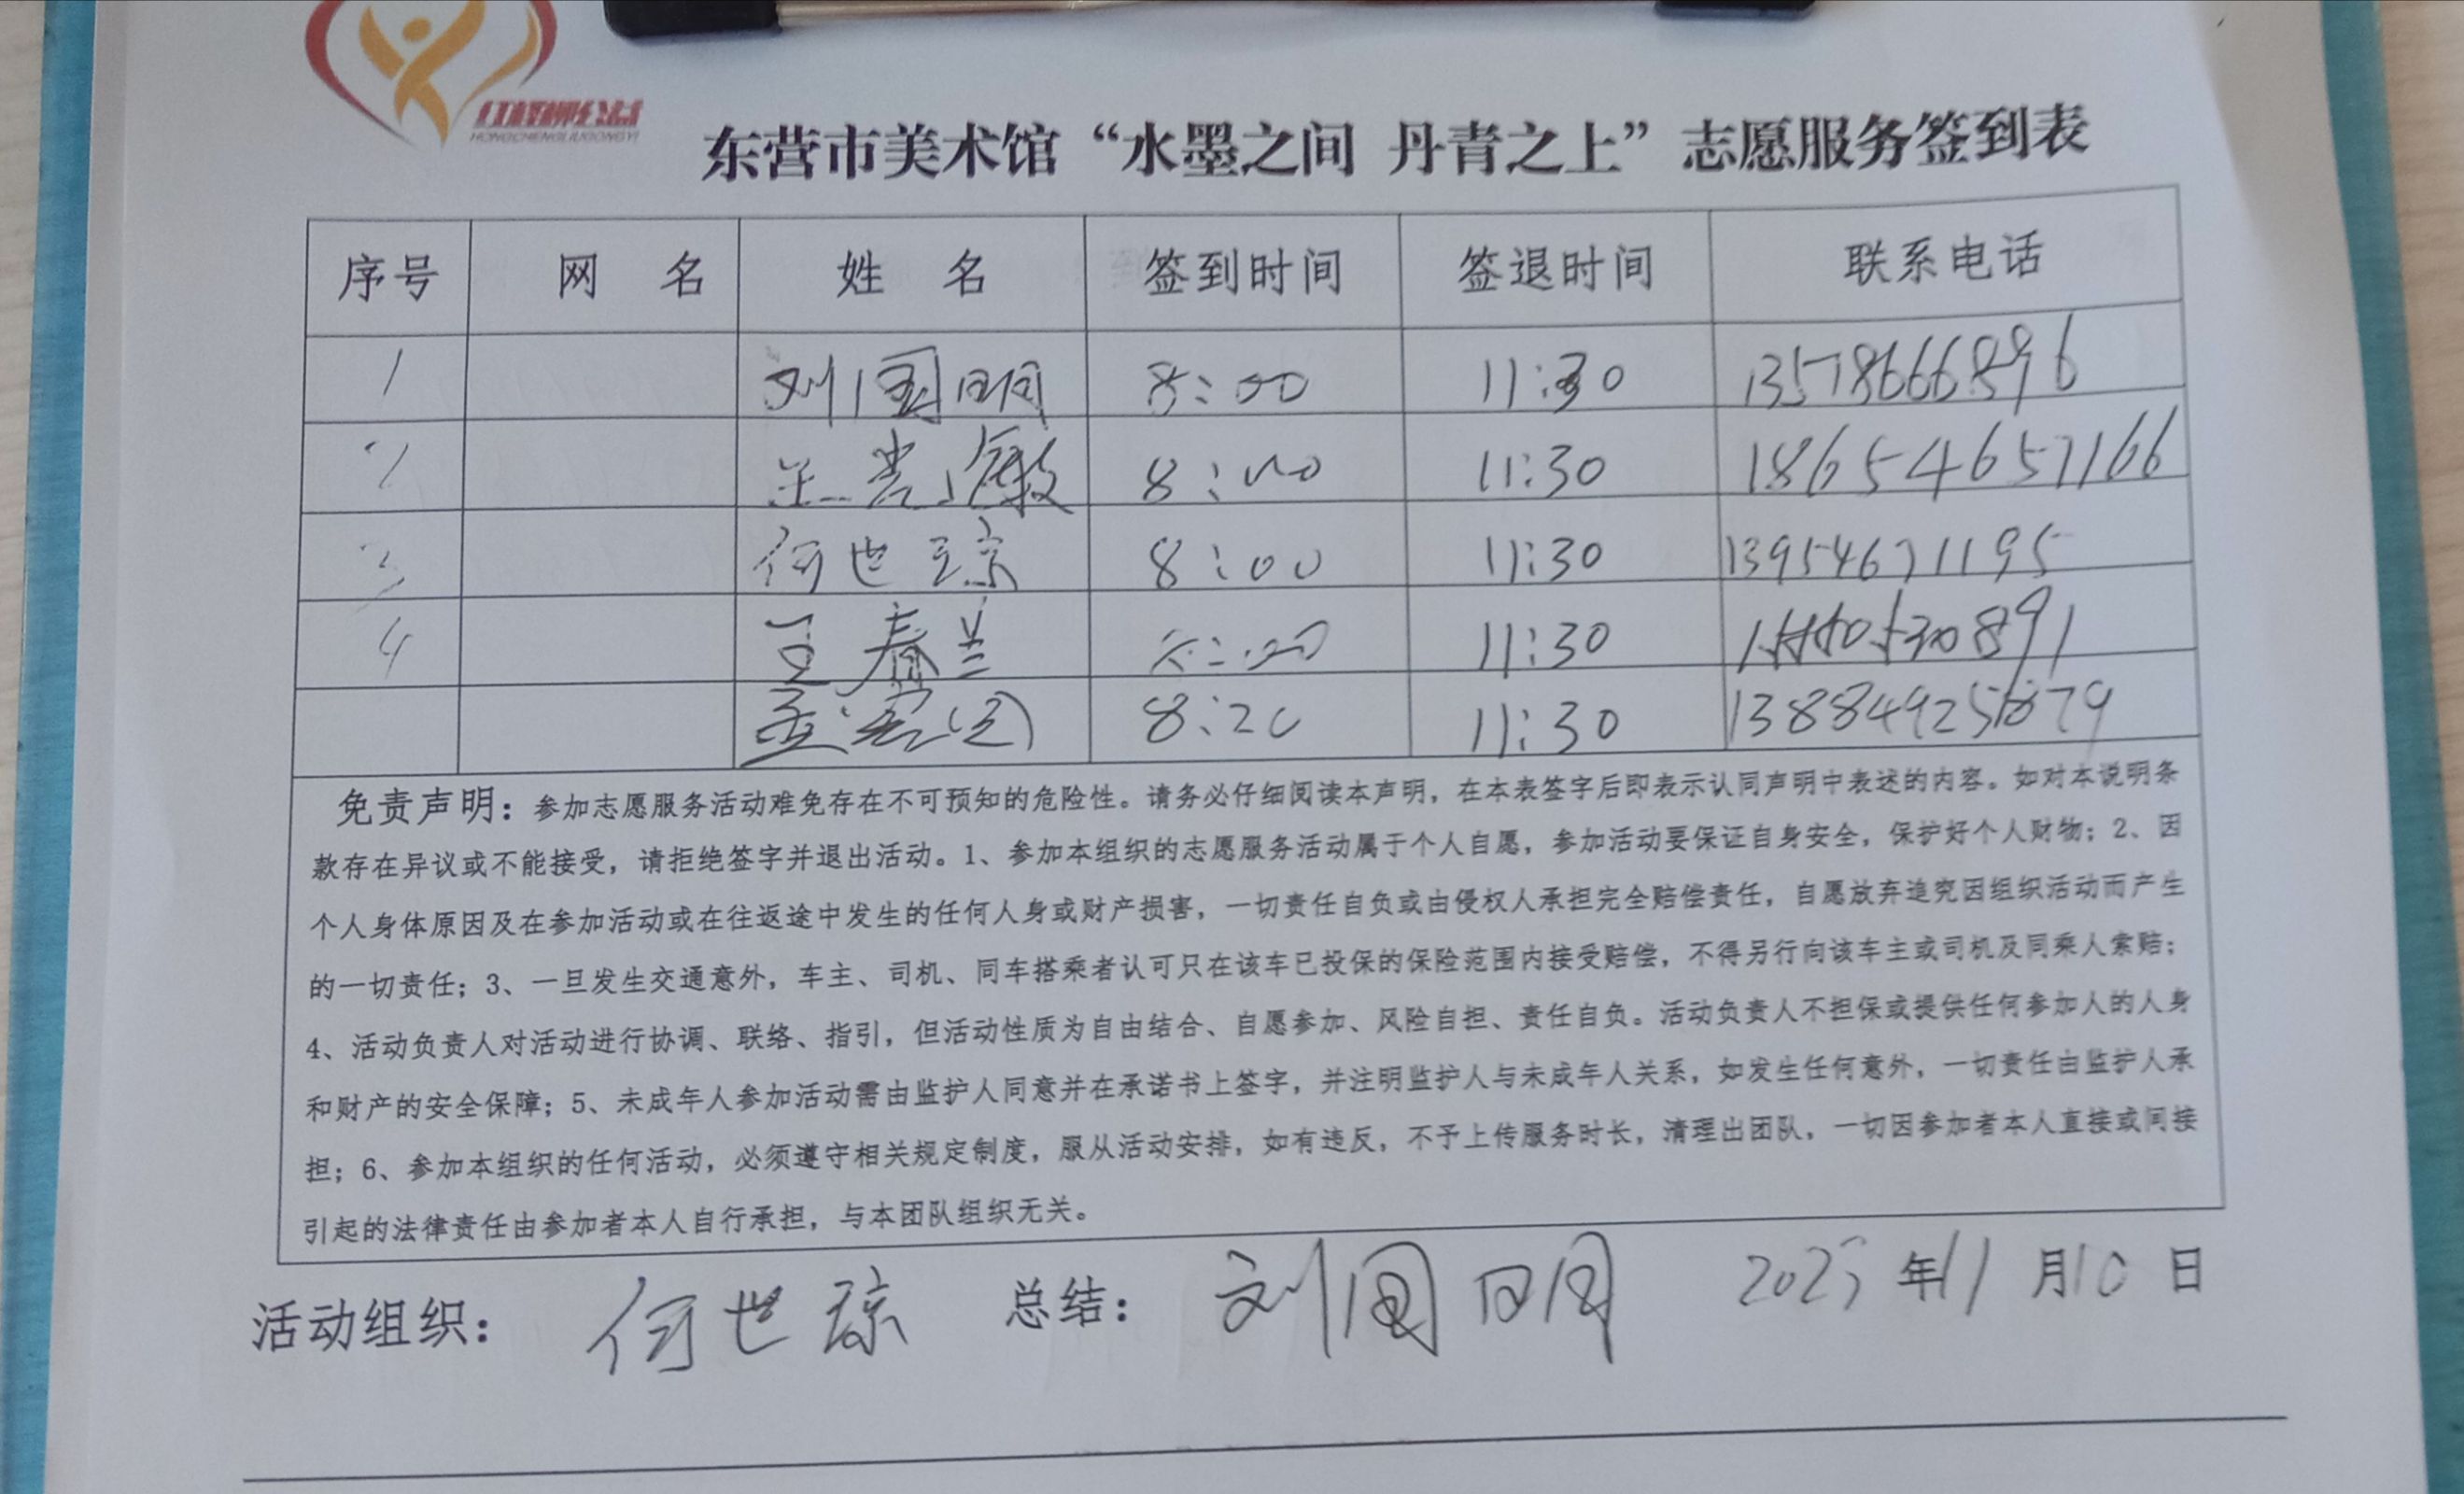 红柽柳公益
HONGCHENGLIUGONGYI
东营市美术馆“水墨之间 丹青之上”志愿服务签到表
序号 网 名 姓 名 签到时间 签退时间 联系电话
1 刘国明 8:00 11:30 13578666896
2 8:00 11:30 18654657166
3 何世琼 8:00 11:30 13954671195
4 王春兰 11:30
8:20 11:30
免责声明：参加志愿服务活动难免存在不可预知的危险性。请务必仔细阅读本声明，在本表签字后即表示认同声明中表述的内容。如对本说明条
款存在异议或不能接受，请拒绝签字并退出活动。1、参加本组织的志愿服务活动属于个人自愿，参加活动要保证自身安全，保护好个人财物；2、因
个人身体原因及在参加活动或在往返途中发生的任何人身或财产损害，一切责任自负或由侵权人承担完全赔偿责任，自愿放弃追究因组织活动而产生
的一切责任；3、一旦发生交通意外，车主、司机、同车搭乘者认可只在该车已投保的保险范围内接受赔偿，不得另行向该车主或司机及同乘人索赔；
4、活动负责人对活动进行协调、联络、指引，但活动性质为自由结合、自愿参加、风险自担、责任自负。活动负责人不担保或提供任何参加人的人身
和财产的安全保障；5、未成年人参加活动需由监护人同意并在承诺书上签字，并注明监护人与未成年人关系，如发生任何意外，一切责任由监护人承
担；6、参加本组织的任何活动，必须遵守相关规定制度，服从活动安排，如有违反，不予上传服务时长，清理出团队，一切因参加者本人直接或间接
引起的法律责任由参加者本人自行承担，与本团队组织无关。
活动组织：何世琼 总结：刘国明 2025年11月10日